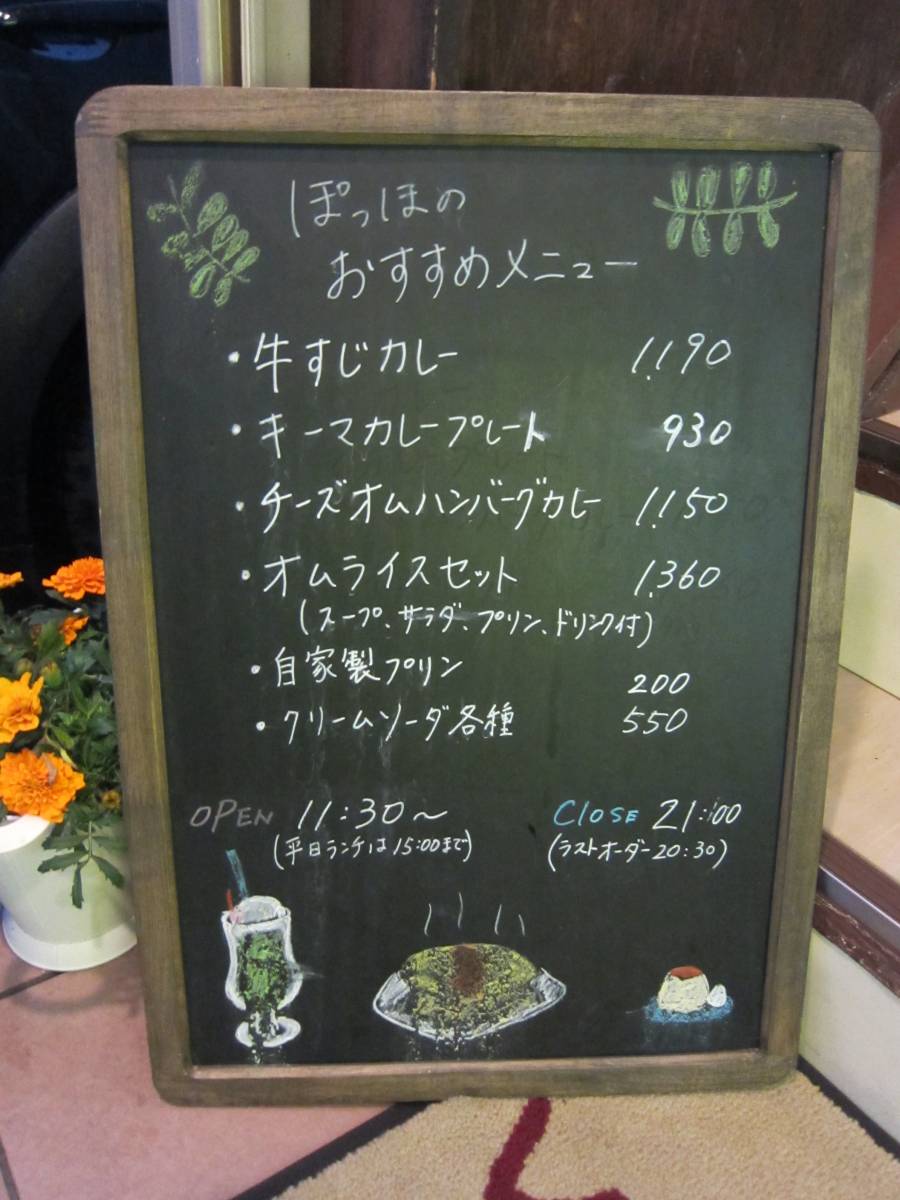 ぽっぽの
おすすめメニュー
・牛すじカレー 1,190
・キーマカレープレート 930
・チーズオムハンバーグカレー 1,150
・オムライスセット 1,360
(スープ、サラダ、プリン、ドリンク付)
・自家製プリン 200
・クリームソーダ各種 550
OPEN 11:30～ CLOSE 21:00
(平日ランチは15:00まで) (ラストオーダー20:30)